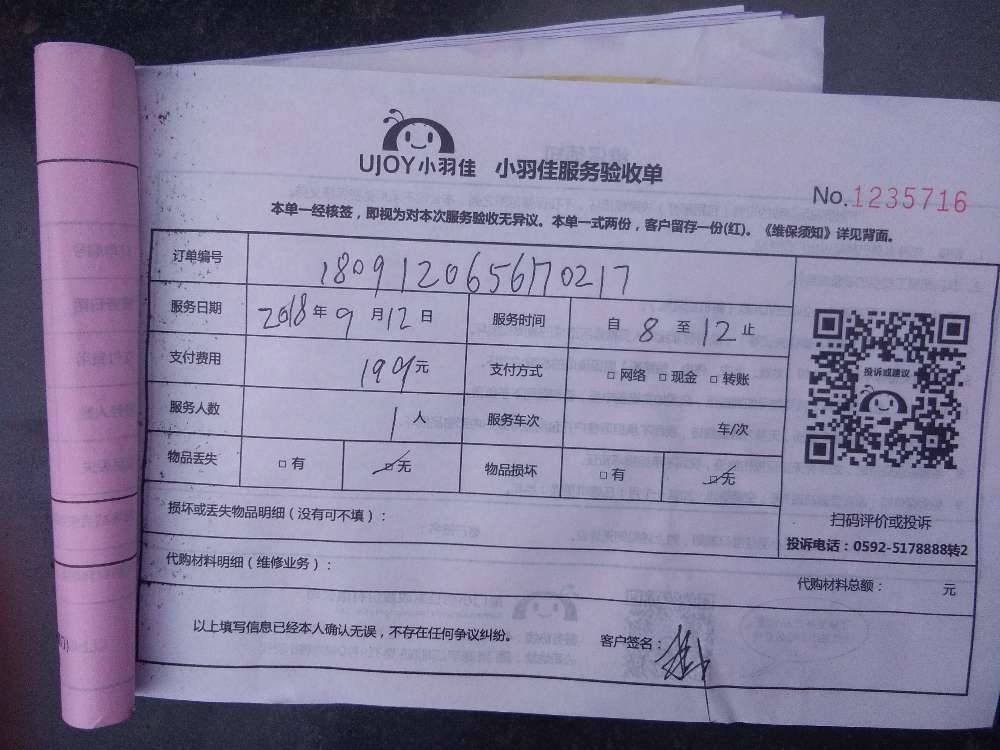 UJOY小羽佳 小羽佳服务验收单
No.1235716
本单一经核签，即视为对本次服务验收无异议。本单一式两份，客户留存一份(红)。《维保须知》详见背面。
订单编号 180912065670217
服务日期 2018年9月12日 服务时间 自8至12止
支付费用 199元 支付方式 □网络 □现金 □转账
服务人数 1人 服务车次 车/次
物品丢失 □有 □无 物品损坏 □有 □无
投诉或建议
扫码评价或投诉
投诉电话：0592-5178888转2
损坏或丢失物品明细（没有可不填）：
代购材料明细（维修业务）： 代购材料总额： 元
以上填写信息已经本人确认无误，不存在任何争议纠纷。 客户签名：